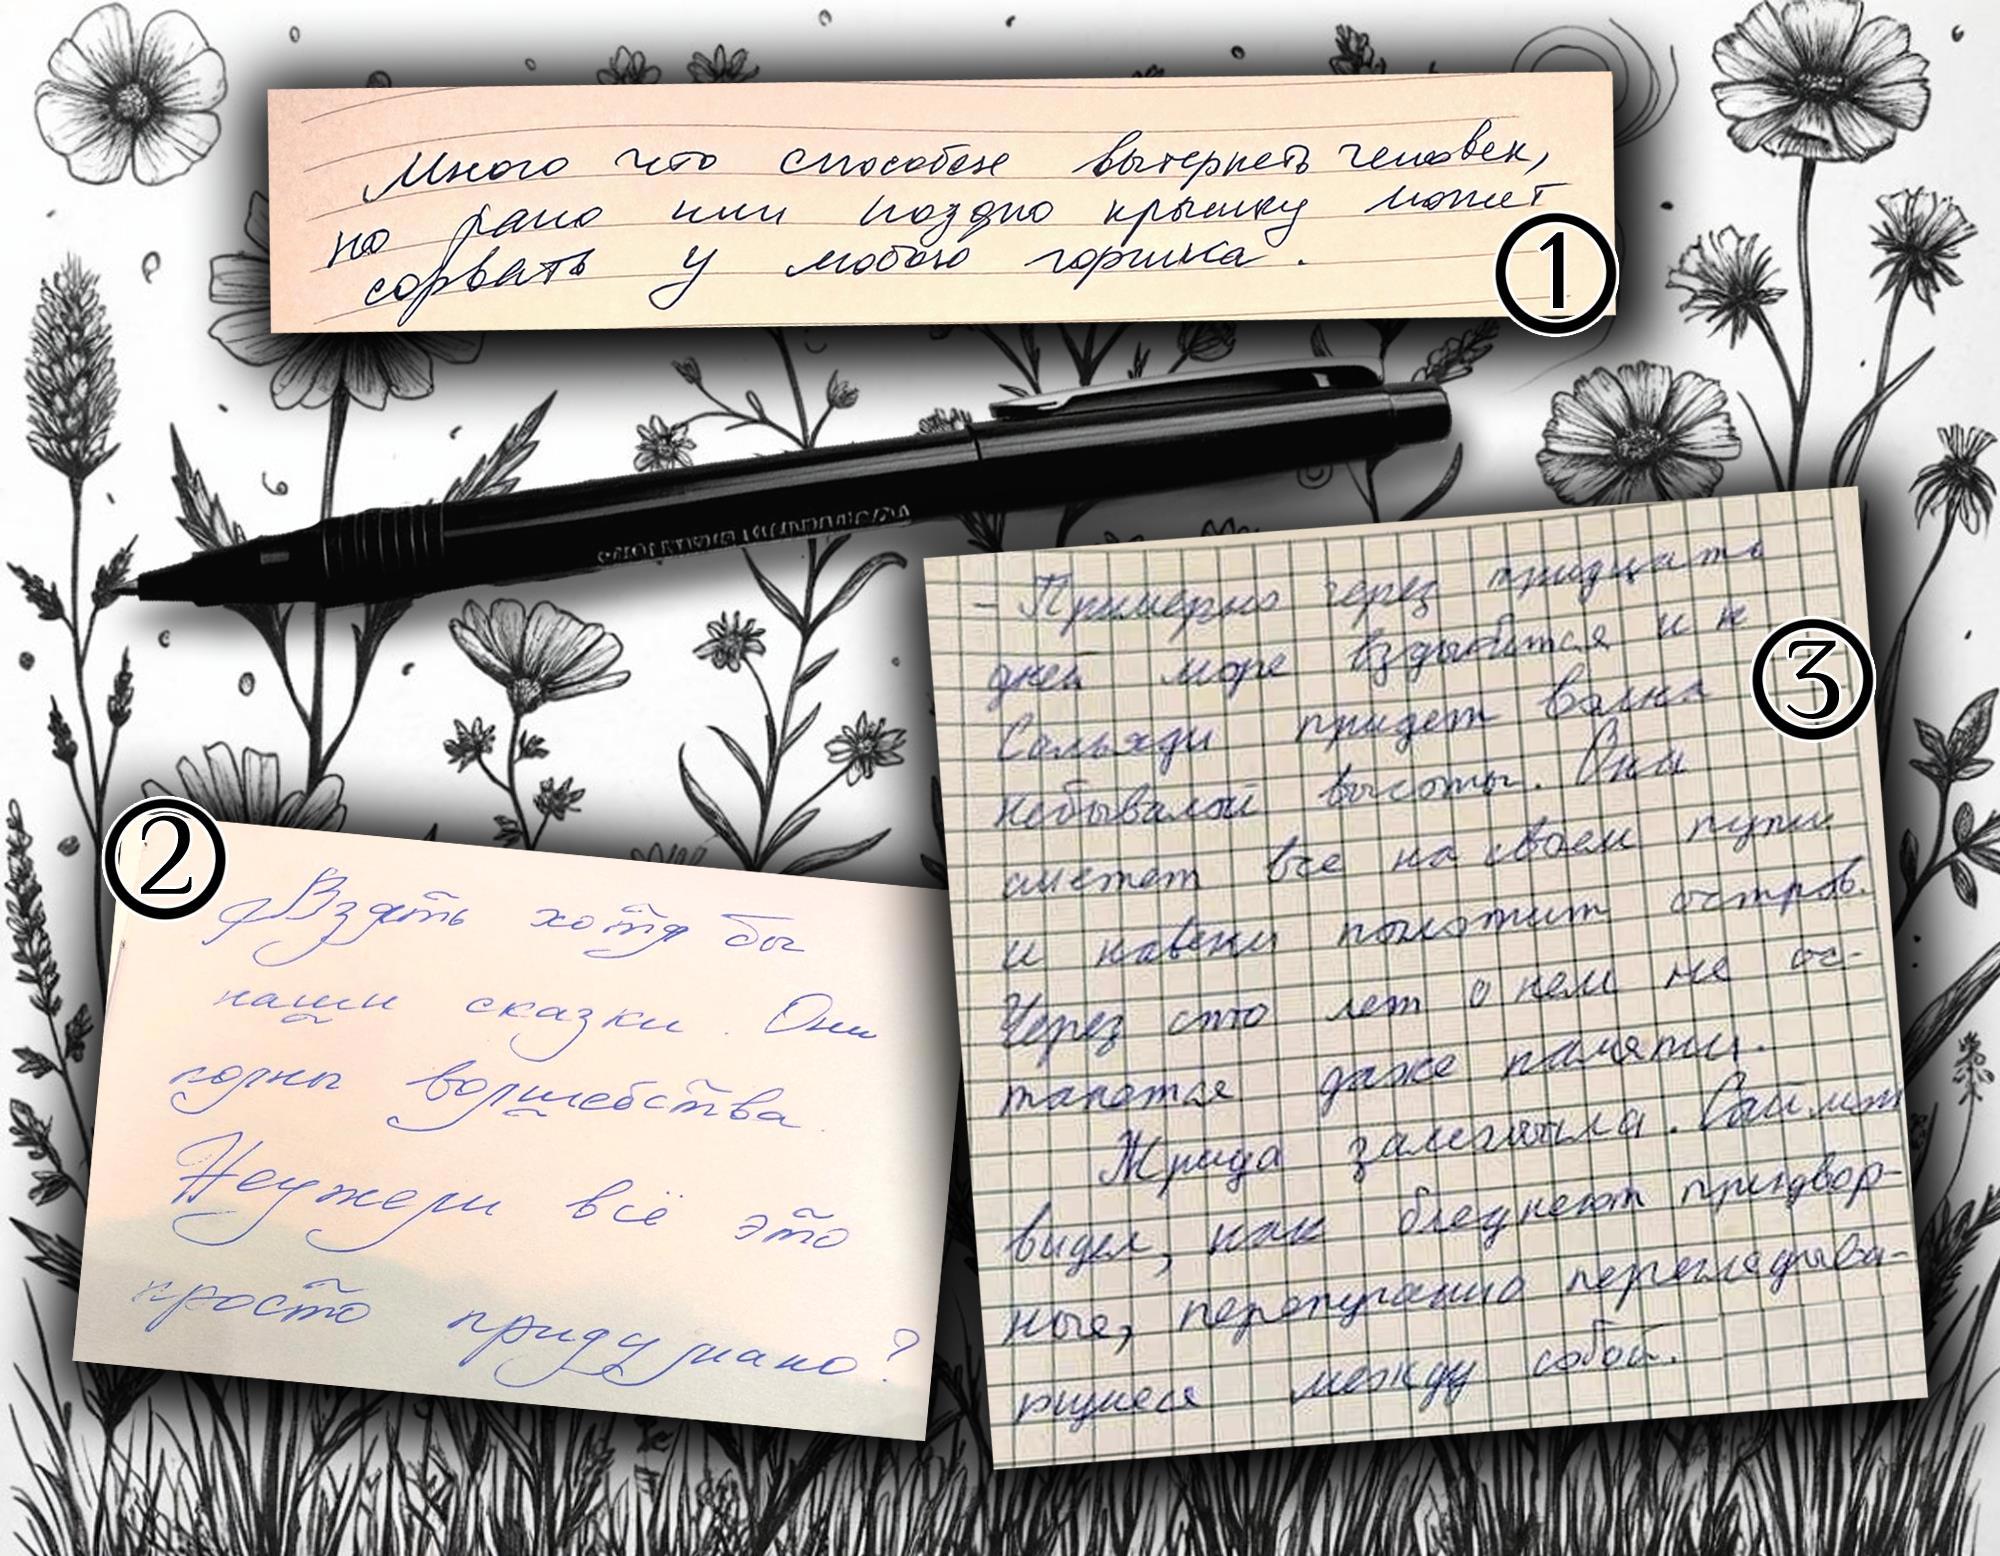 Много что способен вытерпеть человек,
но рано или поздно крышку может
сорвать у любого горшка.
1
2
Взять хотя бы
наши сказки. Они
полны волшебства.
Неужели всё это
просто придумано?
3
- Примерно через тридцать
дней море вздыбится и к
Сальхяди придет волна
небывалой высоты. Она
сметет все на своем пути
и навеки поглотит остров.
Через сто лет о нем не ос-
танется даже памяти.
Жрица замолчила.
видел, как бледнеют придвор-
ные, перепугано переглядыва-
ющиеся между собой.